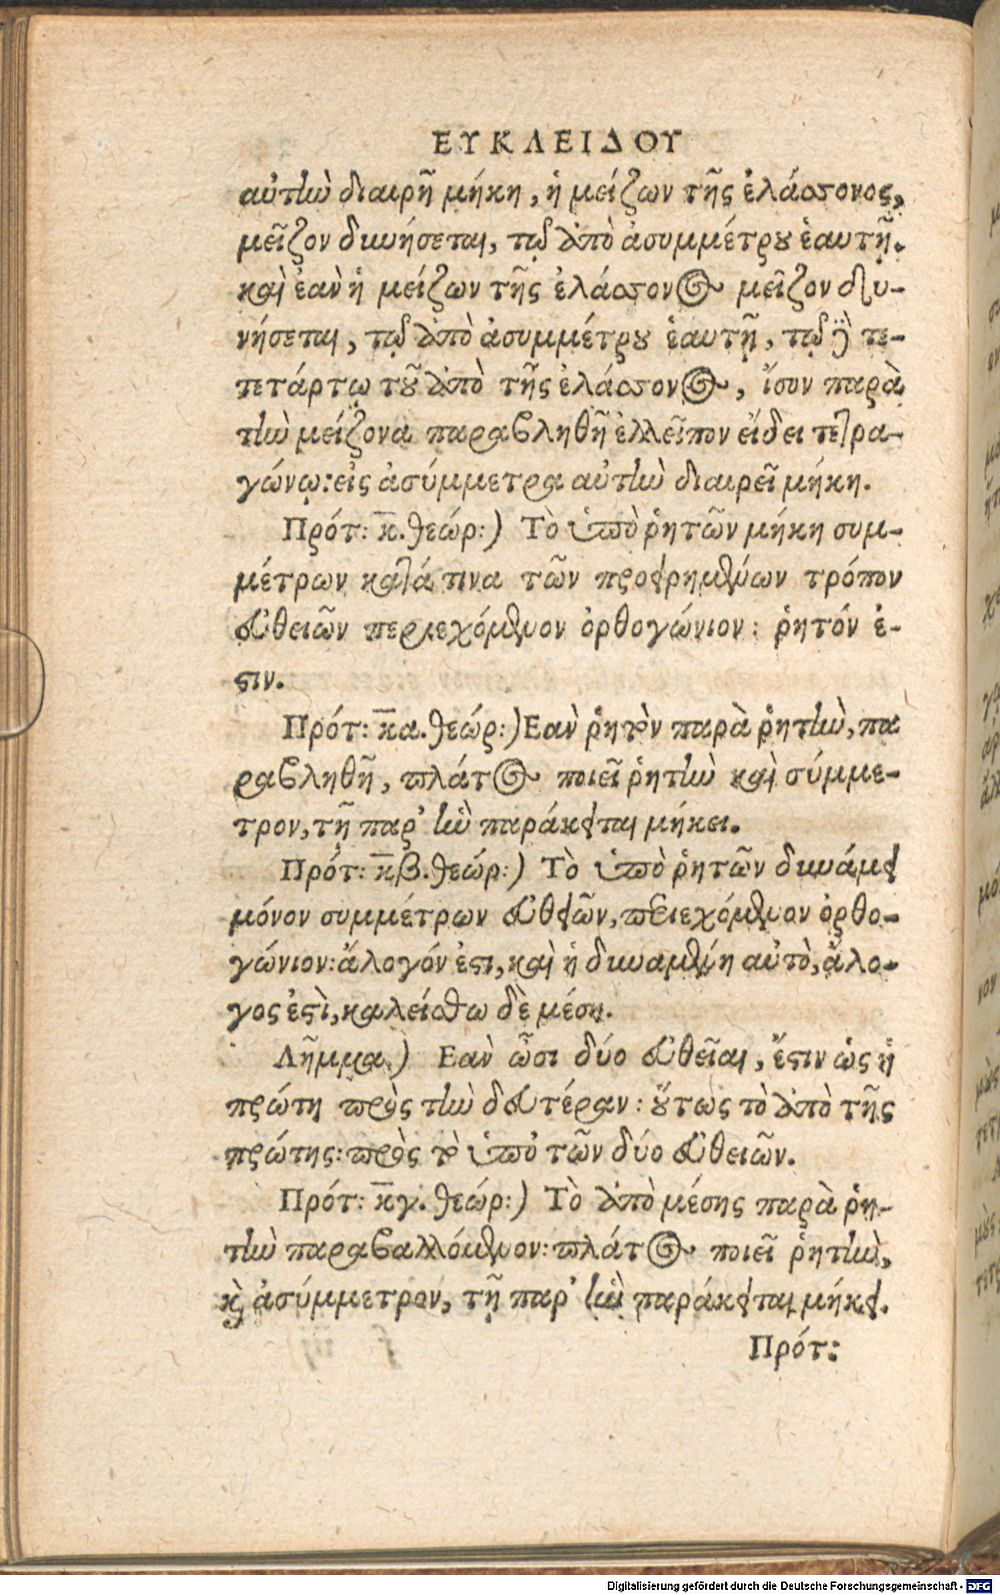 ΕΥΚΛΕΙΔΟΥ
αὐτὴν διαιρῆ μήκη, ἡ μείζων τῆς ἐλάσσονος,
μεῖζον δυνήσεται, τῷ ἀπὸ ἀσυμμέτρου ἑαυτῇ.
καὶ ἐὰν ἡ μείζων τῆς ἐλάσσονος μεῖζον δυ-
νήσεται, τῷ ἀπὸ ἀσυμμέτρου ἑαυτῇ, τῷ δὲ τε-
τετάρτῳ τοῦ ἀπὸ τῆς ἐλάσσονος, ἴσον παρὰ
τὴν μείζονα παραβληθῆ ἐλλεῖπον εἴδει τετρα-
γώνῳ: εἰς ἀσύμμετρα αὐτὴν διαιρεῖ μήκη.
Πρότ: κ̅. θεώρ:) Τὸ ὑπὸ ῥητῶν μήκη συμ-
μέτρων κατά τινα τῶν προειρημένων τρόπον
εὐθειῶν περιεχόμενον ὀρθογώνιον: ῥητόν ἐ-
στιν.
Πρότ: κ̅α. θεώρ:) Εαν ῥητὸν παρὰ ῥητὴν, πα
ραβληθῆ, πλάτος ποιεῖ ῥητὴν καὶ σύμμε-
τρον, τῇ παρ' ἣν παράκειται μήκει.
Πρότ: κ̅β. θεώρ:) Τὸ ὑπὸ ῥητῶν δυνάμει
μόνον συμμέτρων εὐθειῶν, περιεχόμενον ὀρθο-
γώνιον: ἄλογόν ἐστι, καὶ ἡ δυναμένη αὐτὸ, ἄλο-
γος ἐστὶ, καλείσθω δὲ μέση.
Λῆμμα.) Εαν ὦσι δύο εὐθεῖαι, ἔστιν ὡς ἡ
πρώτη πρὸς τὴν δευτέραν: οὕτως τὸ ἀπὸ τῆς
πρώτης: πρὸς τὸ ὑπὸ τῶν δύο εὐθειῶν.
Πρότ: κ̅γ. θεώρ:) Τὸ ἀπὸ μέσης παρὰ ῥη-
τὴν παραβαλλόμενον: πλάτος ποιεῖ ῥητὴν,
καὶ ἀσύμμετρον, τῇ παρ' ἣν παράκειται μήκει.
Πρότ:
Digitalisierung gefördert durch die Deutsche Forschungsgemeinschaft - DFG